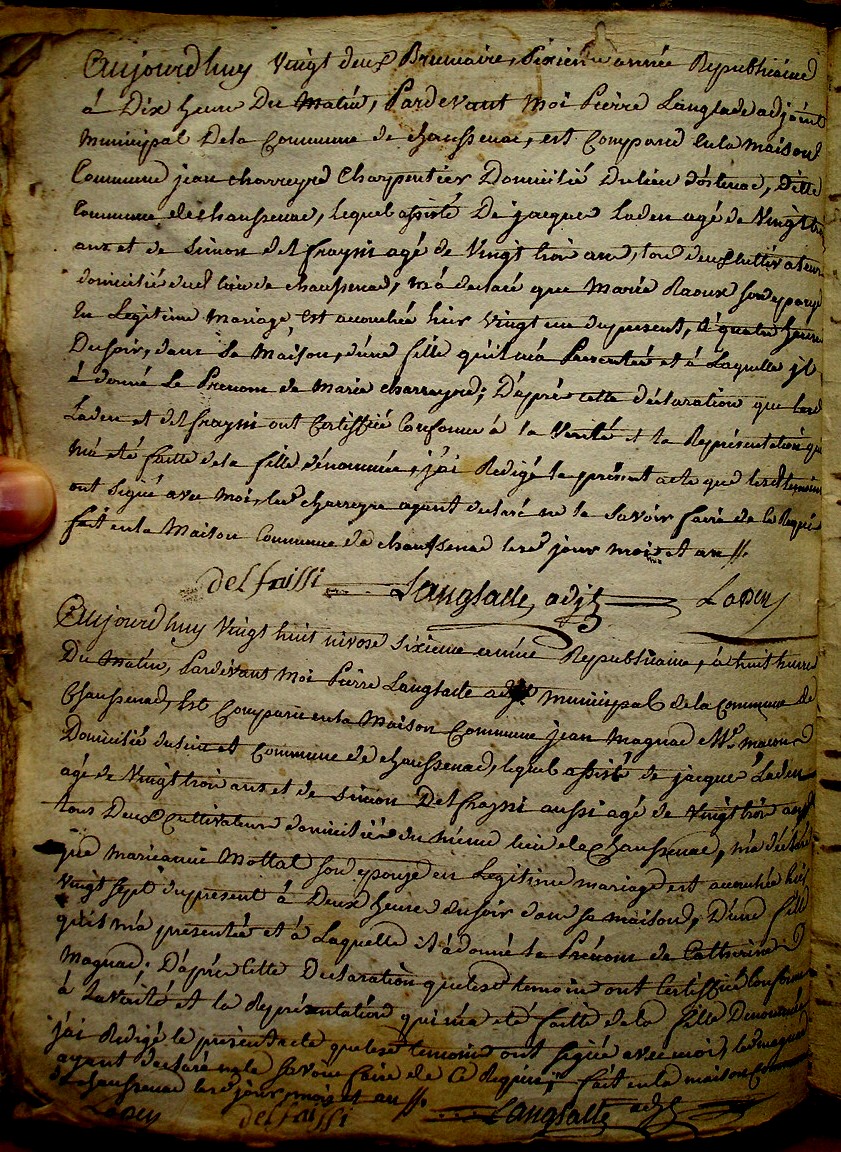 Aujourdhuy Vingt deux Brumaire, Sixieme année Republicaine
à Dix heure Du Matin, Pardevant Moi Pierre Langlade adjoint
Municipal Dela Commune de chaussenac, est Comparu En la maison
Commune jean charreyre Charpentier Domicilié Du lieu d'ostenac, Ditte
Commune de chaussenac, lequel assisté De jacques Laden agé de Vingt troi
ans et de Simon delfrayssi agé de Vingt troi ans, tous deux Cultivateurs
domicilié dud. lieu de chaussenac, m'a declaré que Marie Raoux son epouze
En Legitime Mariage, Est acouchée hier Vingt un du present, à quatre heure
Du soir, dans Sa Maison, d'une fille qu'il m'a Presentée et à Laquelle jl
à donné Le Prenom de Marie charreyre; D'après cette déclaration que lesd.
Laden et delfrayssi ont Certiffié Conforme à la Verité et la Représentation qui
m'a eté faitte de la fille dénommée, j'ai Redigé le present acte que lesd. temoins
ont Signé avec Moi, led. charreyre ayant declaré ne le Savoir faire de ce Requi
fait en la Maison Commune de chaussenac lesd. jour mois et an //.
delfraissi Langlade, adjt Laden
Aujourdhuy Vingt huit nivose Sixieme année Republicaine, à huit heure
Du Matin, Pardevant Moi Pierre Langlade adjt municipal de la Commune de
Chaussenac, Est Comparu en la Maison Commune jean Magnac macon
Domicilié du lieu et Commune de chaussenac, lequel assisté de jacques Laden
agé de Vingt troi ans et de Simon Delfrayssi aussi agé de Vingt troi ans
tous Deux Cultivateurs domiciliés du même lieu de Chaussenac, m'a déclaré
que marieanne Mottat son epouze en Legitime mariage est acouchée hier
Vingt Sept du present à Deux heure du soir dans sa maison, D'une fille
qu'il m'a présentée et à Laquelle il à donné le Prénom de Catherine
Magnac; D'après Cette Declaration que lesd. temoins ont Certiffié Conforme
à la Verité et la Représentation qui m'a eté faitte de la fille Denommée
j'ai Redigé le present acte que lesd. temoins ont signé avec moi, led. magnac
ayant declaré ne le Savoir faire de Ce Requis, fait en la maison Commune
de chaussenac lesd. jour, mois et an //.
Laden delfraissi Langlade adjt